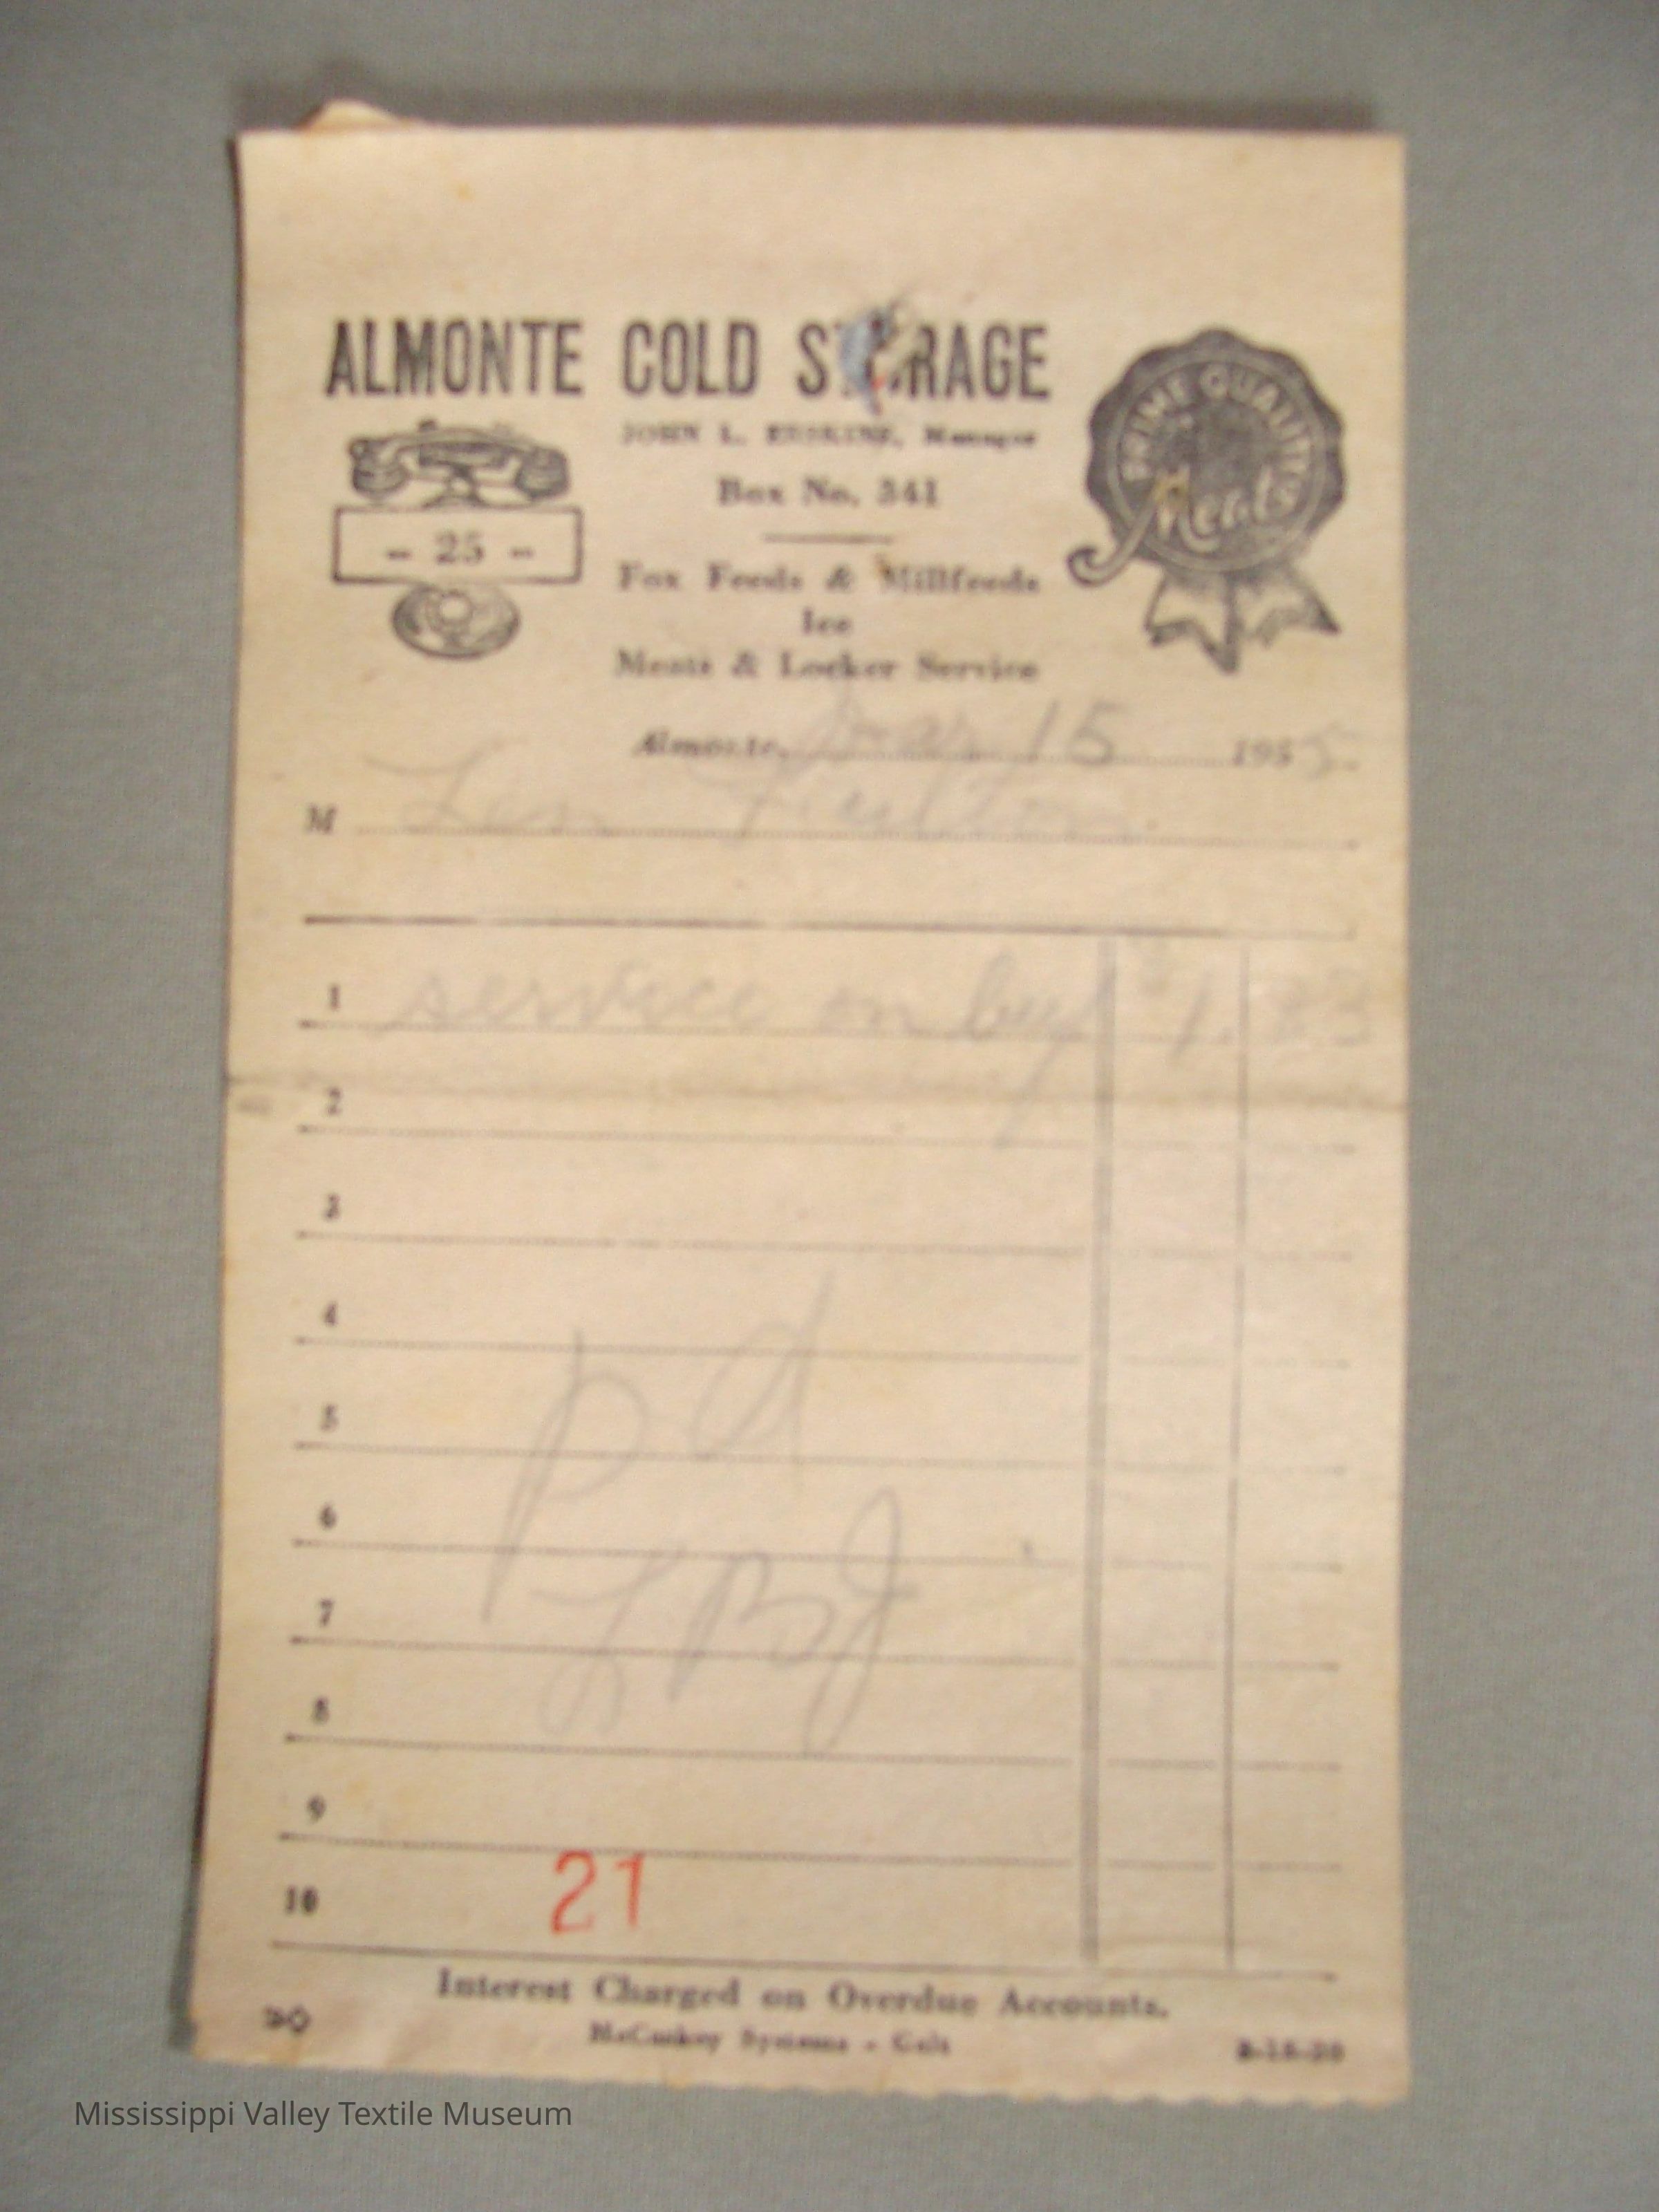 ALMONTE COLD STORAGE
JOHN L. ERSKINE, Manager
Box No. 341
PRIME QUALITY
Meats
-- 25 --
Fox Feeds & Millfeeds
Ice
Meats & Locker Service
Almonte, Mar 15 1955
M Len Fulton
1 service on 1.23
2
3
4
5
6
7
8
9
10
Pd
LBJ
21
Interest Charged on Overdue Accounts.
20
McCaskey Systems - Galt
Mississippi Valley Textile Museum